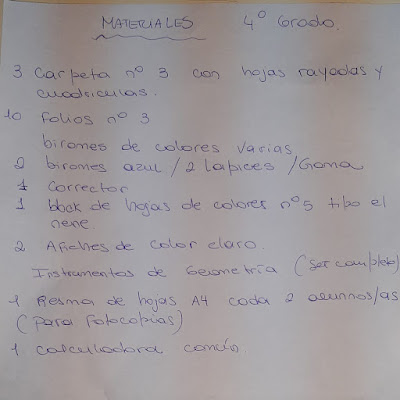 MATERIALES 4º Grado.
3 Carpeta nº 3 con hojas rayadas y
cuadriculas.
10 Folios nº 3
biromes de colores varias
2 biromes azul / 2 lapices / Goma
1 corrector
1 block de hojas de colores nº 5 tipo el
nene.
2 Afiches de color claro.
Instrumentos de Geometría (Set completo)
1 Resma de hojas A4 cada 2 alumnos/as
(para fotocopias)
1 calculadora común